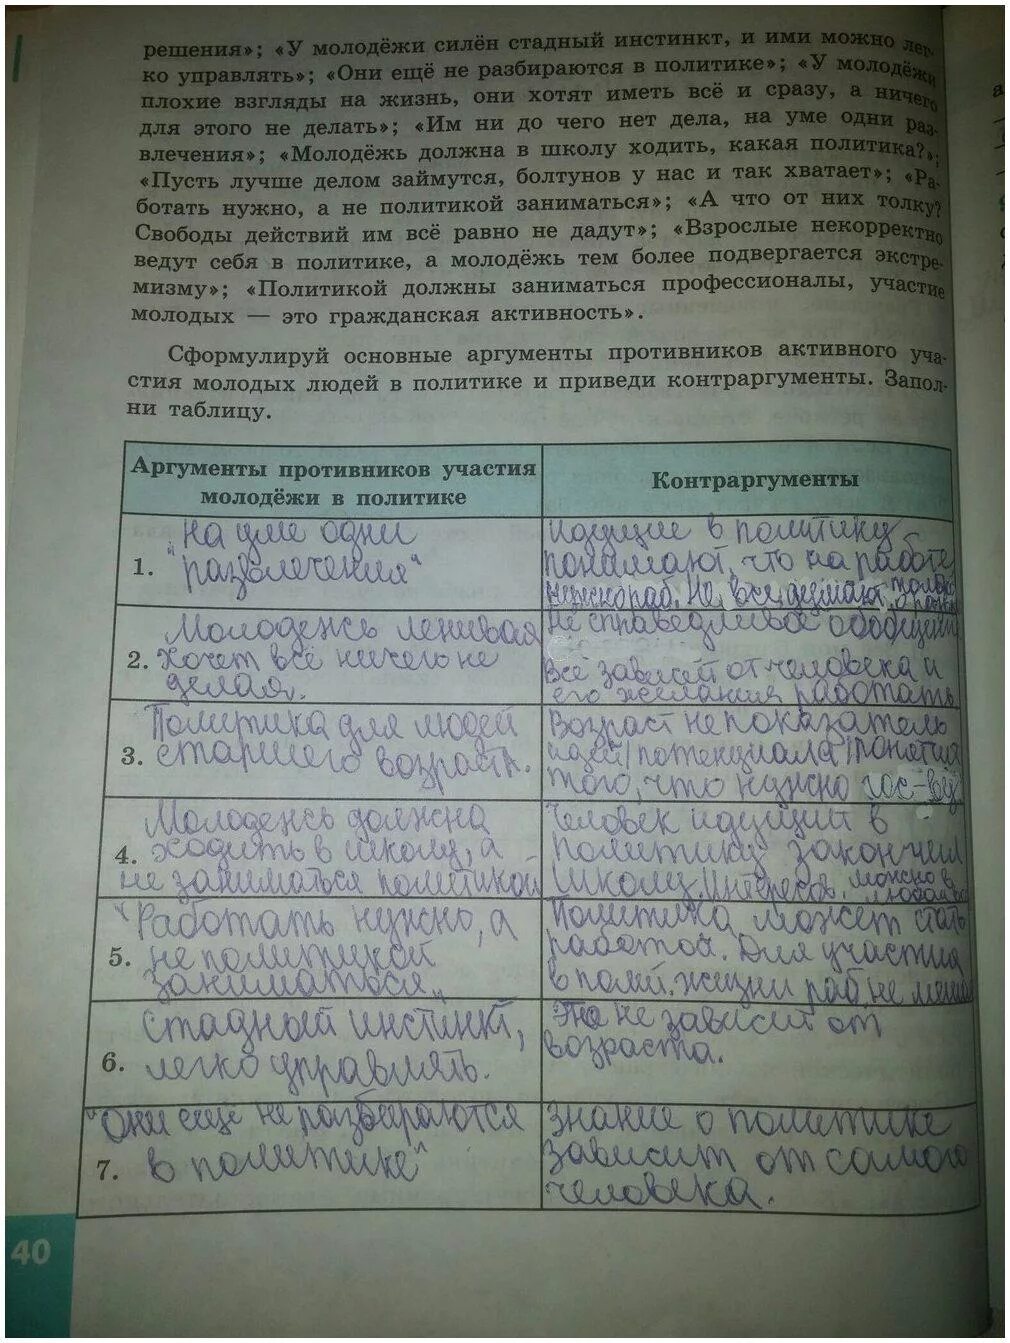 решения»; «У молодёжи силён стадный инстинкт, и ими можно лег-
ко управлять»; «Они ещё не разбираются в политике»; «У молодёжи
плохие взгляды на жизнь, они хотят иметь всё и сразу, а ничего
для этого не делать»; «Им ни до чего нет дела, на уме одни раз-
влечения»; «Молодёжь должна в школу ходить, какая политика?»;
«Пусть лучше делом займутся, болтунов у нас и так хватает»; «Ра-
ботать нужно, а не политикой заниматься»; «А что от них толку?
Свободы действий им всё равно не дадут»; «Взрослые некорректно
ведут себя в политике, а молодёжь тем более подвергается экстре-
мизму»; «Политикой должны заниматься профессионалы, участие
молодых — это гражданская активность».
Сформулируй основные аргументы противников активного уча-
стия молодых людей в политике и приведи контраргументы. Запол-
ни таблицу.
Аргументы противников участия
молодёжи в политике
Контраргументы
1.
"на уме одни
развлечения"
идущие в политику
понимают, что на работе
нужно раб. Не все думают
2.
Молодежь ленивая
хочет всё ничего не
делая.
Не справедливое обобщение
всё зависит от человека и
его желания работать
3.
Политика для людей
старшего возраста.
Возраст не показатель
идей/потенциала/понятия
того, что нужно гос-ву
4.
Молодежь должна
ходить в школу, а
не заниматься политикой
Человек идущий в
политику закончил
школу. Интересов. можно в
5.
"Работать нужно, а
не политикой
заниматься"
Политика может стать
работой. Для участия
в полит. жизни раб не
6.
стадный инстинкт,
легко управлять.
Это не зависит от
возраста.
7.
"Они ещё не разбираются
в политике"
Знание о политике
зависит от самого
человека.
40